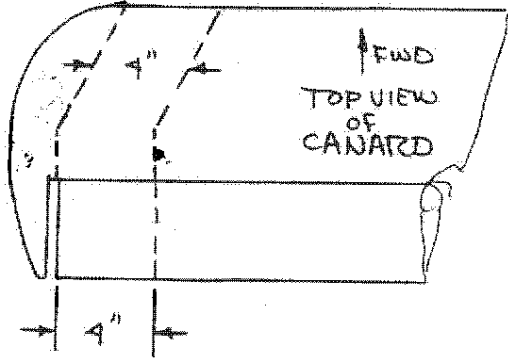 4"
FWD
TOP VIEW
OF
CANARD
4"